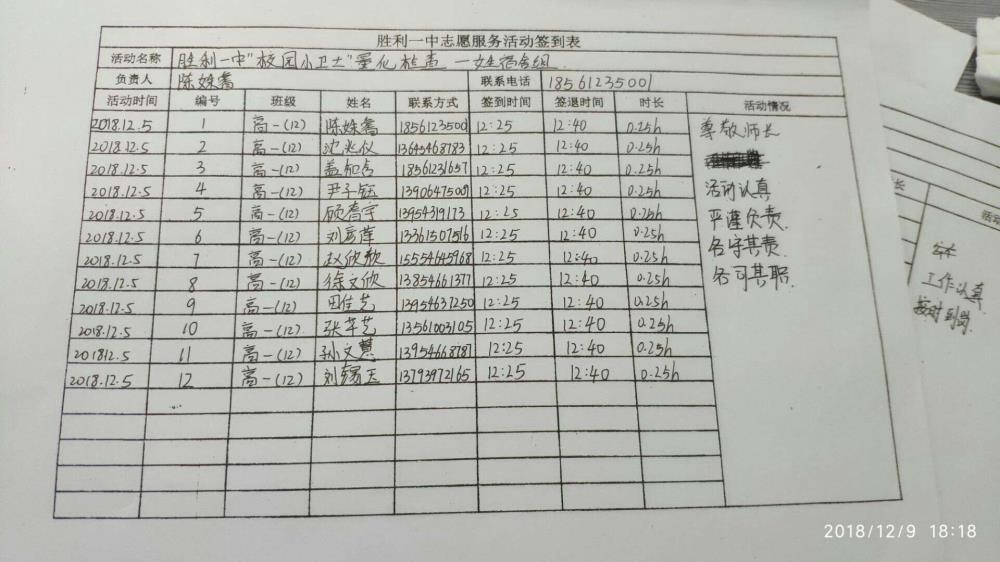 胜利一中志愿服务活动签到表
活动名称 胜利一中"校园小卫士"量化检查 一女宿舍组
负责人 陈姝鸾 联系电话 18561235001
活动时间 编号 班级 姓名 联系方式 签到时间 签退时间 时长 活动情况
2018.12.5 1 高一(12) 陈姝鸾 1856123500 12:25 12:40 0.25h
2018.12.5 2 高一(12) 沈兆仪 13645468783 12:25 12:40 0.25h
2018.12.5 3 高一(12) 盖知含 18561231657 12:25 12:40 0.25h
2018.12.5 4 高一(12) 尹子钰 13906475009 12:25 12:40 0.25h
2018.12.5 5 高一(12) 顾奢宇 13954319173 12:25 12:40 0.25h
2018.12.5 6 高一(12) 刘彦萍 13361507516 12:25 12:40 0.25h
2018.12.5 7 高一(12) 赵欣歌 15554645968 12:25 12:40 0.25h
2018.12.5 8 高一(12) 徐文欣 13854661377 12:25 12:40 0.25h
2018.12.5 9 高一(12) 田佳艺 13954637250 12:25 12:40 0.25h
2018.12.5 10 高一(12) 张芊艺 13561003105 12:25 12:40 0.25h
201812.5 11 高一(12) 孙文慧 13954668787 12:25 12:40 0.25h
2018.12.5 12 高一(12) 刘锡玉 13793972165 12:25 12:40 0.25h
尊敬师长
活动认真
严谨负责.
各守其责.
各司其职.
长
活动
工作认真
按时到岗.
2018/12/9 18:18